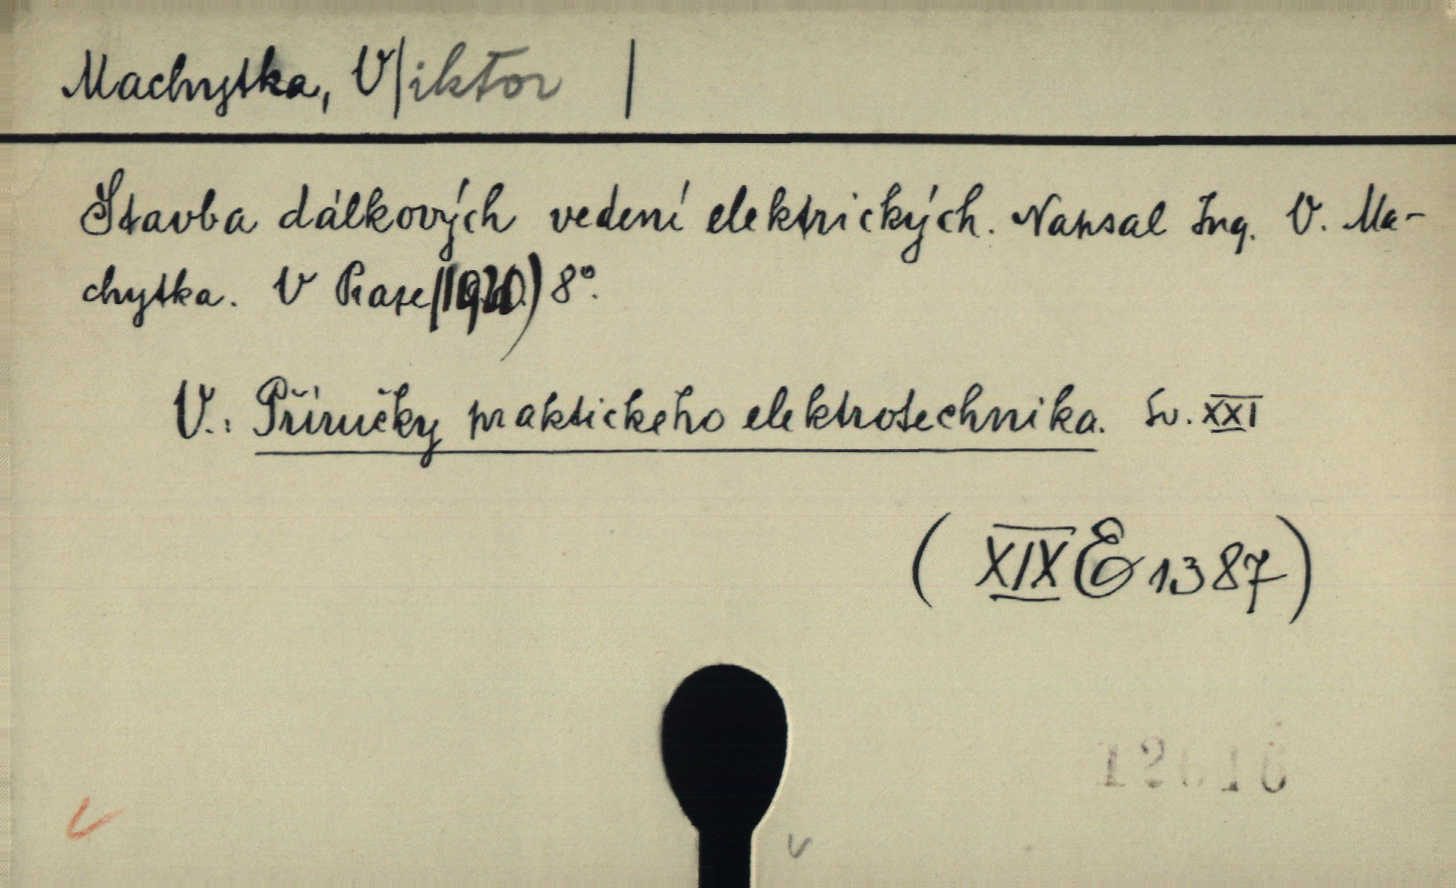 Machytka, V|iktor |
Stavba dálkových vedení elektrických. Napsal Ing. V. Ma-
chytka. V Praze (1920) 8°.
V.: Příručky praktického elektrotechnika. Sv. XXI
( XIX E 1387 )